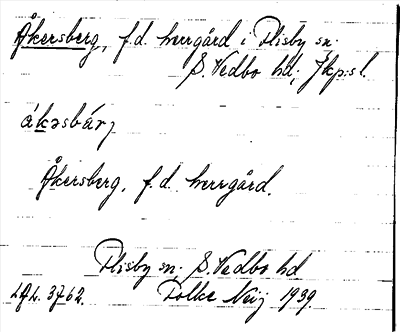 Åkersberg, f.d. herrgård i Flisby sn;
S. Vedbo hd; Jkp:s l.
ákəsbárj
Åkersberg, f.d. herrgård.
Flisby sn; S. Vedbo hd
LAL. 3762. Folke Neij 1939.